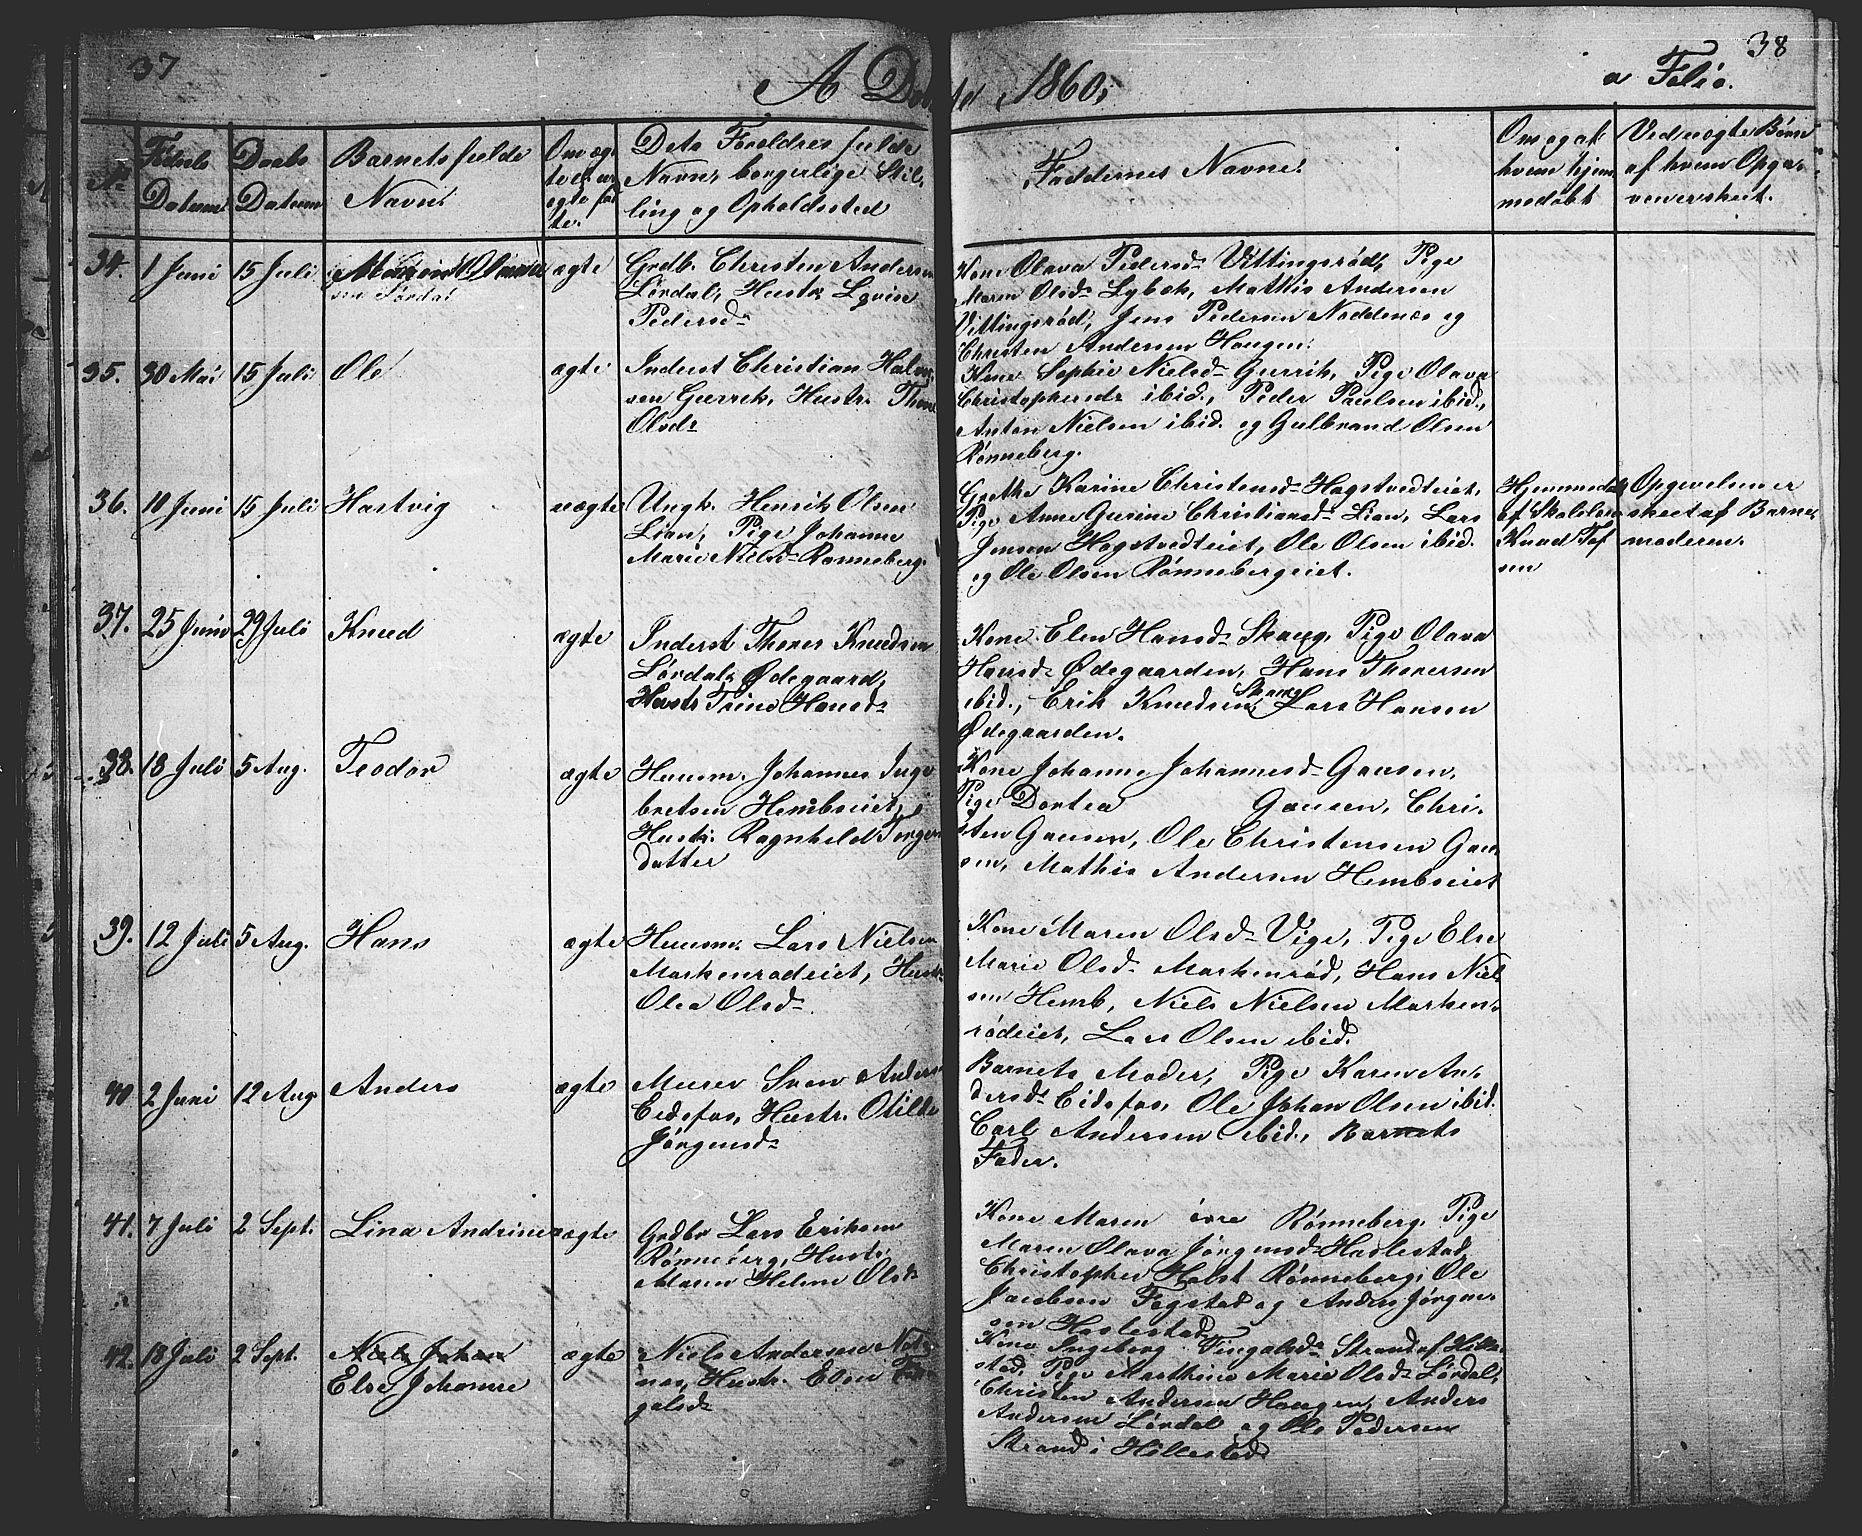 37
38
A Døbte 1860.
a Folio.
No
Fødsels Datum
Daabs Datum
Barnets fulde Navn.
Om ægte eller uægte født.
Dets Forældres fulde
Navn, borgerlige Stil-
ling og Opholdssted
Faddernes Navne.
Om og af hvem hjemmedøbt
Ved uægte Børn
af hvem Opga-
ven er skeet.
34. 1 Juni 15 Juli
sen Lørdal
ægte
Grdb. Christen Andersen
Lørdal, Hustr. Lovise
Pedersd.
Kone Olava Pedersd. Vittingsrød, Pige
Maren Olsd. Lybek, Mathis Andersen
Vittingsrød, Jens Pedersen Noddenæs og
Christen Andersen Haugen.
35. 30 Mai 15 Juli Ole ægte
Inderst Christian Halvor-
sen Gurrik, Hustr. Thone
Olsd.
Kone Sophie Nielsd. Gurrik, Pige Olava
Christophersdr ibid., Peder Paulsen ibid.,
Anton Nielsen ibid. og Gulbrand Olsen
Rønneberg.
36. 10 Juni 15 Juli Hartvig uægte
Ungk. Henrik Olsen
Lian, Pige Johanne
Marie Nielsd. Rønneberg.
Grethe Karine Christensd. Hagstvedteiet,
Pige Anne Gurine Christiansd. Lian, Lars
Jensen Hagstvedteiet, Ole Olsen ibid.
og Ole Olsen Rønnebergeiet.
Hjemmedøbt
af Skolelærer
Knud Tof
sen
Opgivelsen er
skeet af Barne-
moderen.
37. 25 Juni 29 Juli Knud ægte
Inderst Thorer Knudsen
Lørdal, Ødegaard,
Hustr. Trine Hansd.
Kone Elen Hansd. Skaug, Pige Olava
Hansd. Ødegaarden, Hans Thoresen
ibid., Erik Knudsen Skaug, Lars Hansen
Ødegaarden.
38. 18 Juli 5 Aug. Teodor ægte
Huusm. Johannes Inge-
bretsen Hembseiet,
Hustr. Ragnhild Torger
datter
Kone Johanne Johannesd. Gausen,
Pige Dortea Gausen, Chri-
sten Gausen, Ole Christensen Gau-
sen, Mathis Andersen Hembseiet
39. 12 Juli 5 Aug. Hans ægte
Huusm. Lars Nielsen
Markenrødeiet, Hustr.
Olea Olsd.
Kone Maren Olsd. Vige, Pige Else
Marie Olsd. Markenrød, Hans Niel-
sen Hemb, Niels Nielsen Marken-
rødeiet, Lars Olsen ibid.
40 2 Juni 12 Aug Anders ægte
Murer Sven Anders
Eidsfos, Hustr. Otilde
Jørgensd.
Barnets Moder, Pige Karen An-
dersd. Eidsfos, Ole Johan Olsen ibid.
Carl Andersen ibid., Barnets
Fader.
41. 7 Juli 2 Sept. Lina Andrine ægte
Grdbr Lars Eriksen
Rønneberg, Hustr.
Maren Helene Olsdr
Kone Maren Rønneberg, Pige
Maren Olava Jørgensd. Haslestad,
Christopher Holst Rønneberg, Ole
Jacobsen Fegstad og Anders Jørgen-
sen Haslestad
42. 18 Juli 2 Sept. Niels Johan
Else Johanne
ægte
Niels Andersen
næs, Hustr. Elen Tin-
galsd.
Kone Ingeborg Tingalsd. Strand af Hille-
stad, Pige Mathine Marie Olsd. Lørdal,
Christen Andersen Haugen, Anders
Andersen Lørdal og Ole Pedersen
Strand i Hillestad